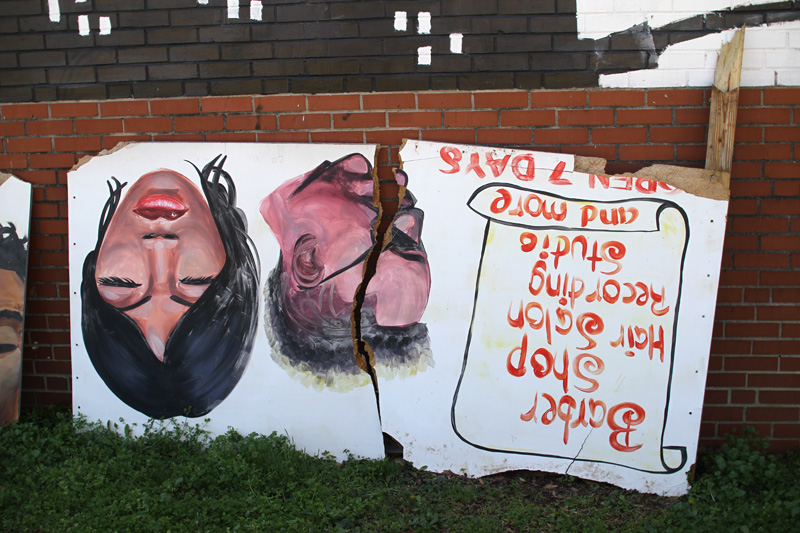 Barber
Shop
Hair Salon
Recording
Studio
and more
OPEN 7 DAYS